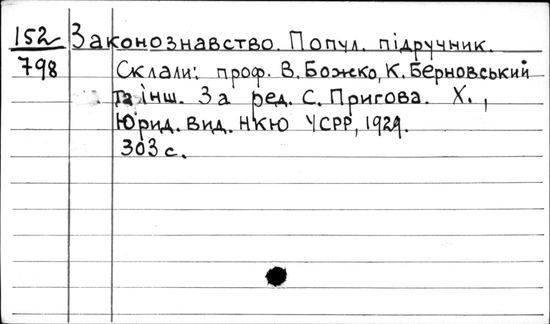 152 Законознавство. Попул. підручник.
798 Склали: проф. В. Божко, К. Берновський
та інш. За ред. С. Пригова. Х.,
Юрид. Вид. НКЮ УСРР, 1929.
303 с.